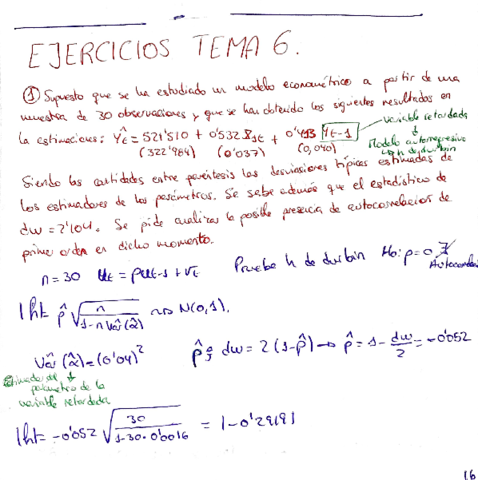 EJERCICIOS TEMA 6.
① Supuesto que se ha estudiado un modelo econométrico a partir de una
muestra de 30 observaciones y que se han obtenido los siguientes resultados en
la estimación: Ŷt = 521'510 + 0'532 X1t + 0'413 Yt-1
variable retardada
(322'984) (0'037) (0,040)
Modelo autorregresivo
h de durbin
Siendo las cantidades entre paréntesis las desviaciones típicas estimadas de
los estimadores de los parámetros. Se sabe además que el estadístico de
dw = 2'104. Se pide analizar la posible presencia de autocorrelación de
primer orden en dicho momento.
n = 30 ut = ρut-1 + vt Prueba h de durbin H0: ρ = 0 ∄
Autocorrelac
|h| = ρ̂ √(n / (1-n Vâr(α̂))) ~> N(0,1).
Vâr(α̂) = (0'04)² ρ̂ dw = 2(1-ρ̂) → ρ̂ = 1 - dw/2 = -0'052
parámetro de la
variable retardada
|h| = -0'052 √(30 / (1-30·0'0016)) = |-0'29191
16